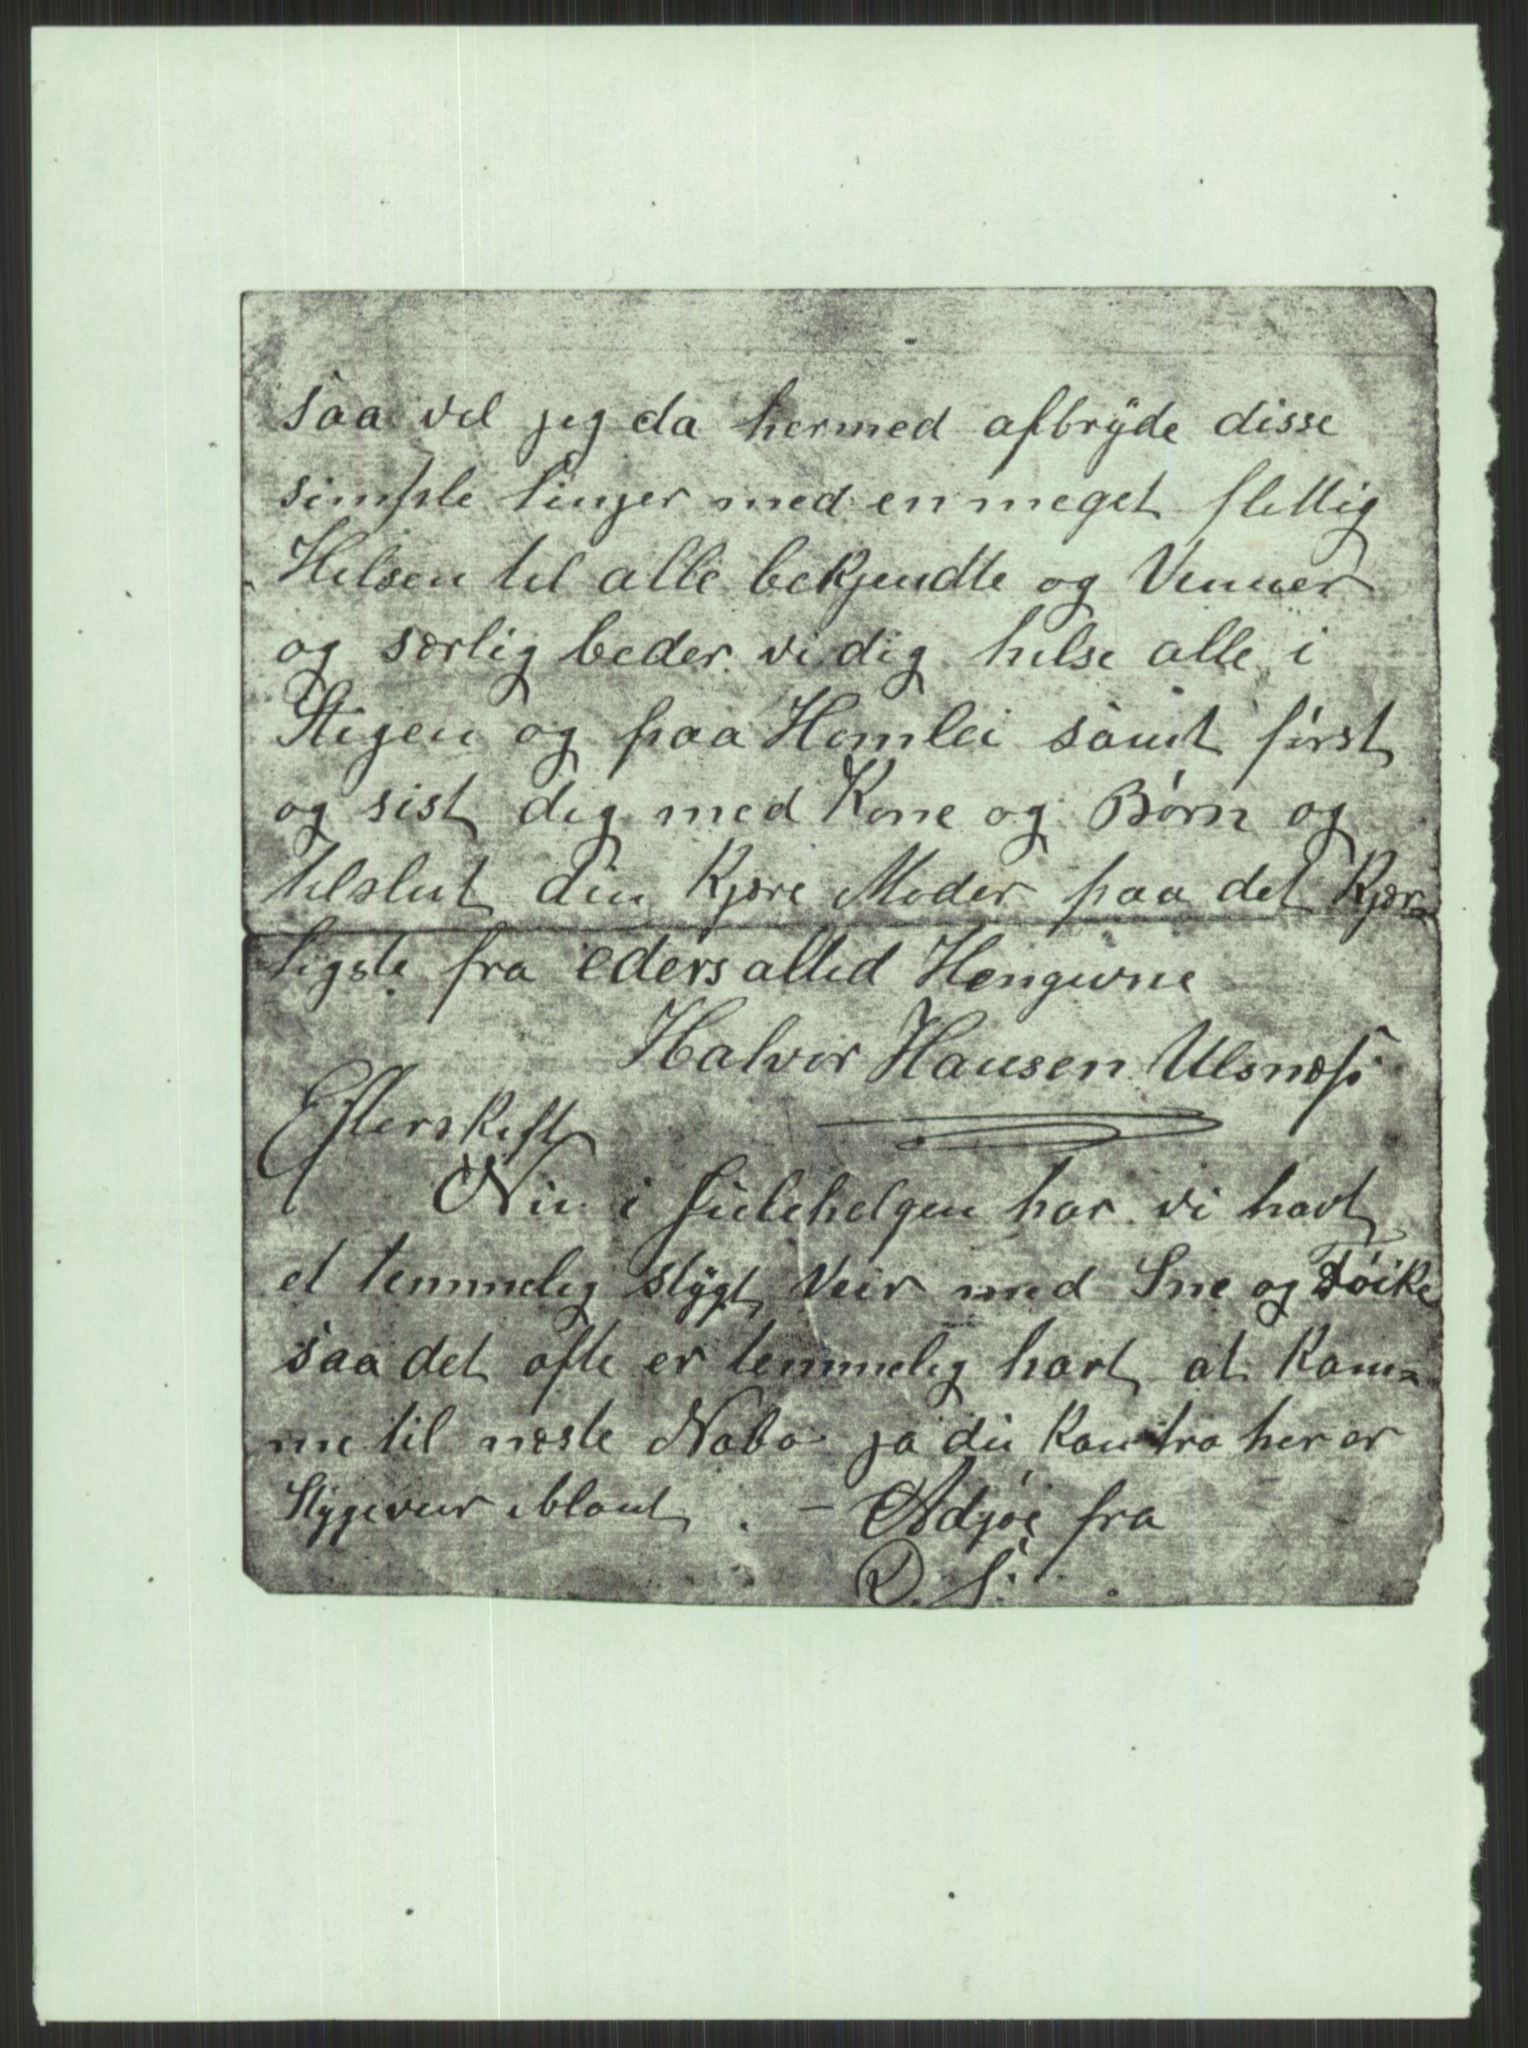 saa vel jeg da hermed afbryde disse
simple Linjer med en meget flittig
Helsen til alle bekjendte og Venner
og særlig beder vi dig helse alle i
Stigen og paa Homlei samt først
og sist dig med Kone og Børn og
tilslut din Kjære Moder paa det Kjær-
ligste fra eders altid Hengivne
Halvor Hansen Ulsnæs
Efterskrift
Nu i Julehelgen har vi havt
et temmelig stygt Veir med Sne og Føike
saa det ofte er temmelig hart at Kom-
me til næste Nabo ja du kan tro her er
Stygeveir iblant. – Adjøe fra
D. S.